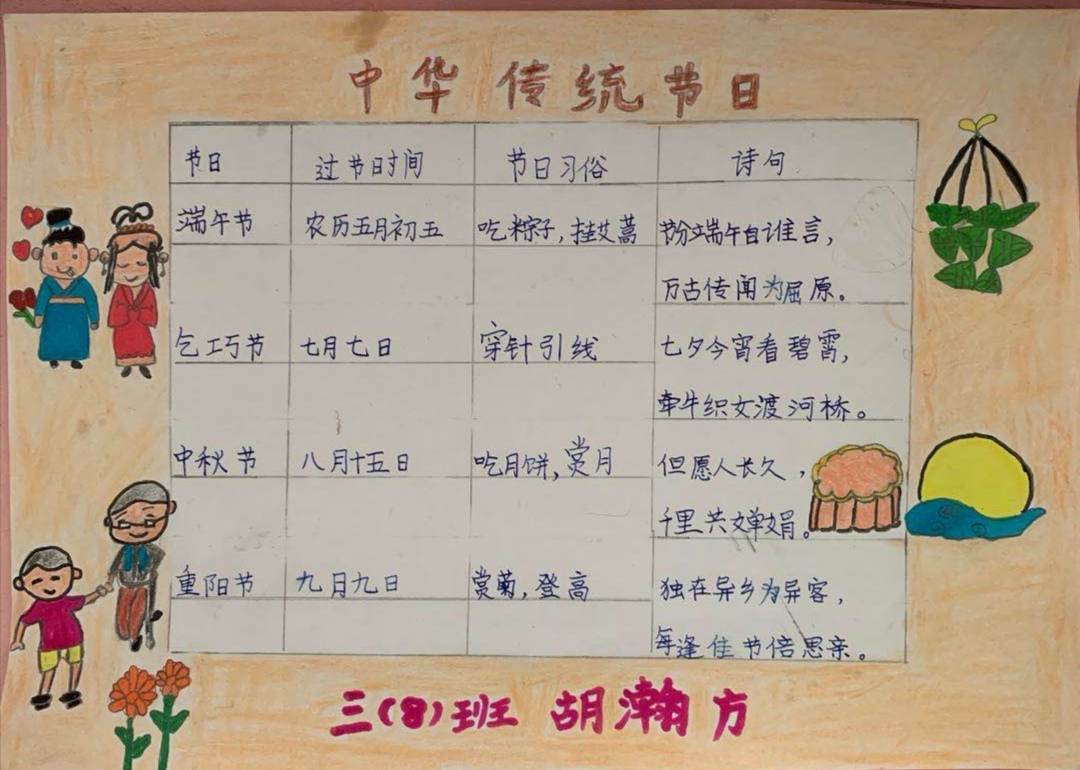 中华传统节日
节日 过节日时间 节日习俗 诗句
端午节 农历五月初五 吃粽子，挂艾蒿 节分端午自谁言，
万古传闻为屈原。
乞巧节 七月七日 穿针引线 七夕今宵看碧霄，
牵牛织女渡河桥。
中秋节 八月十五日 吃月饼，赏月 但愿人长久，
千里共婵娟。
重阳节 九月九日 赏菊，登高 独在异乡为异客，
每逢佳节倍思亲。
三（8）班 胡瀚方